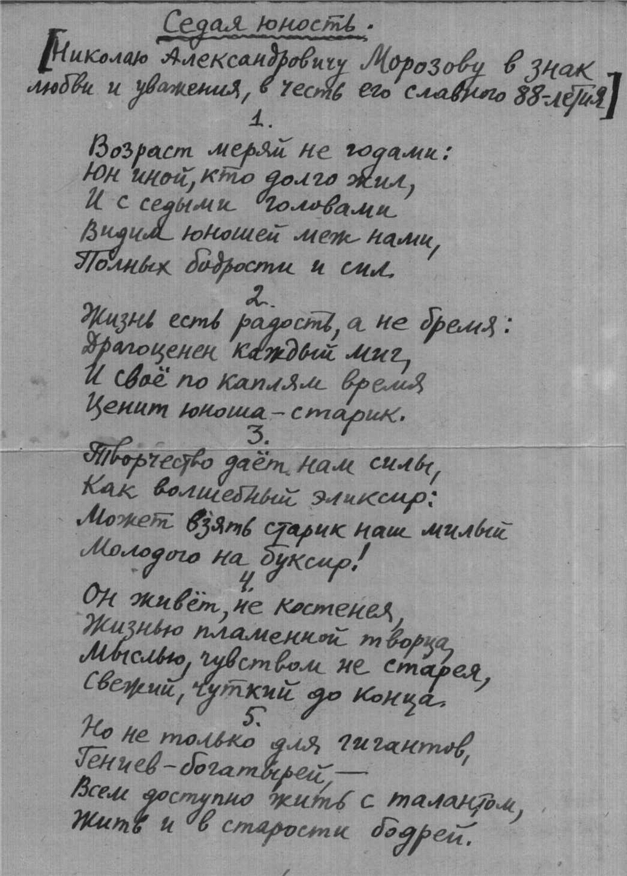 Седая юность.
[Николаю Александровичу Морозову в знак
любви и уважения, в честь его славного 88-летия]
1.
Возраст меряй не годами:
Юн иной, кто долго жил,
И с седыми головами
Видим юношей меж нами,
Полных бодрости и сил.
2.
Жизнь есть радость, а не бремя:
Драгоценен каждый миг,
И своё по каплям время
Ценит юноша-старик.
3.
Творчество даёт нам силы,
Как волшебный эликсир:
Может взять старик наш милый
Молодого на буксир!
4.
Он живёт, не костенея,
Жизнью пламенной творца,
Мыслью, чувством не старея,
Свежий, чуткий до конца.
5.
Но не только для гигантов,
Гениев-богатырей, —
Всем доступно жить с талантом,
Жить и в старости бодрей.